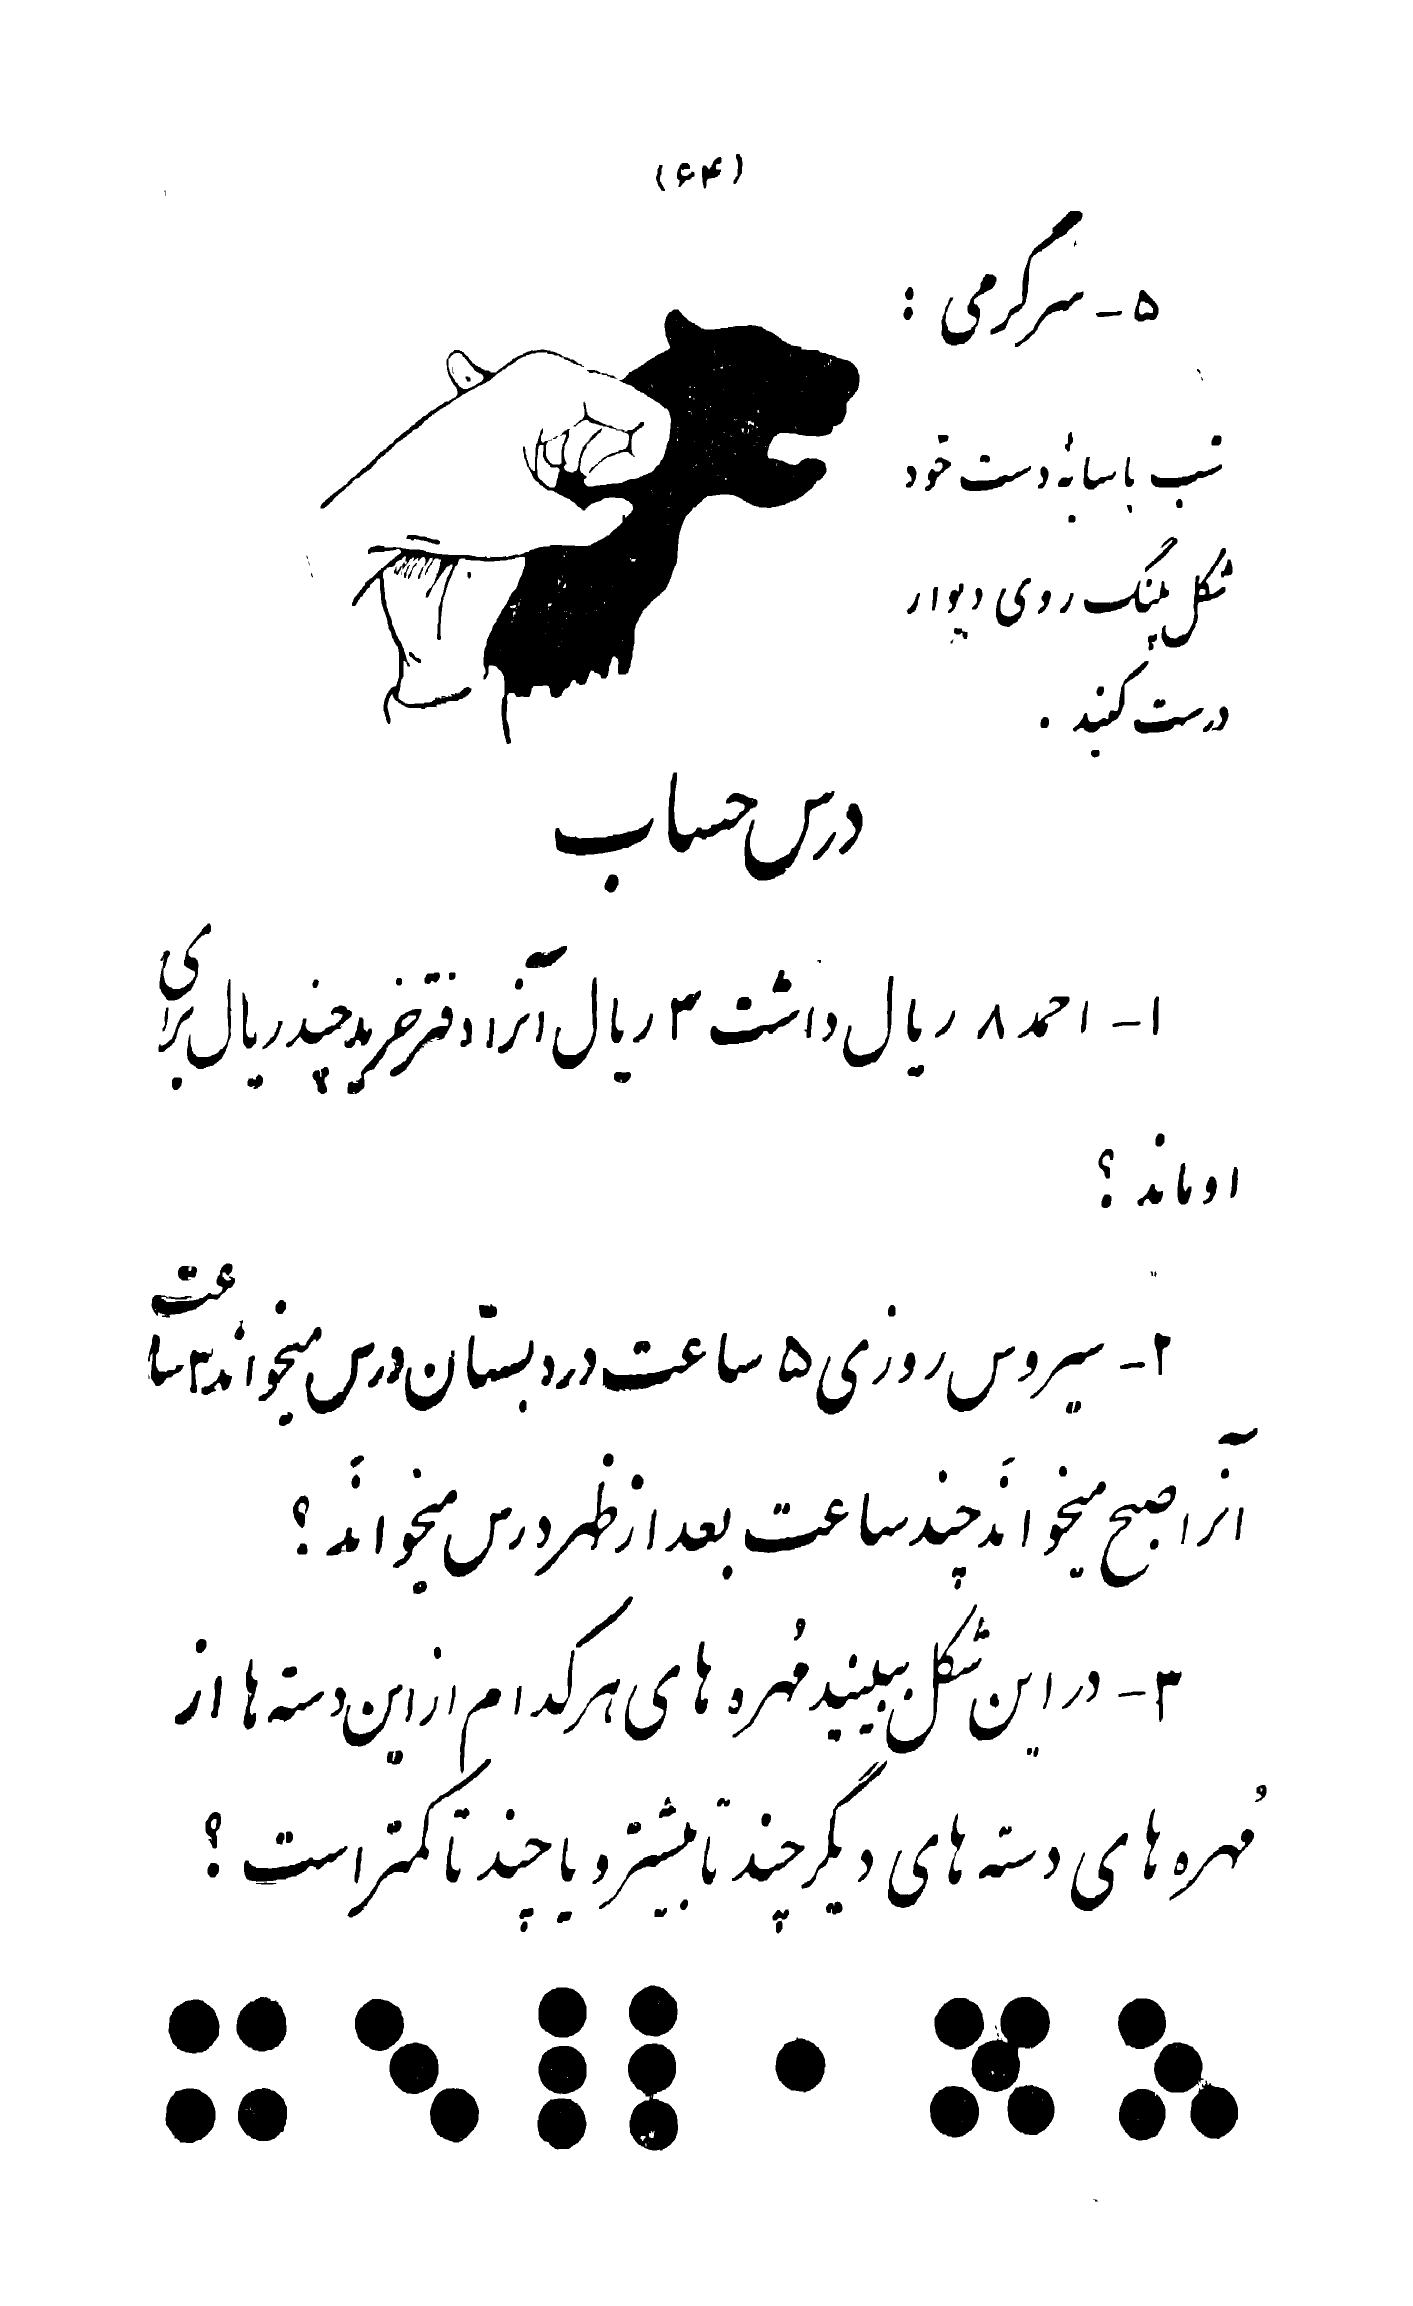 (۶۴)
۵- سرگرمی :
شب با سایهٔ دست خود
شکل پلنگ روی دیوار
درست کنید .
درس حساب
۱- احمد ۸ ریال داشت ۳ ریال آنرا دفتر خرید چند ریال برای
او ماند ؟
۲- سیروس روزی ۵ ساعت در دبستان درس میخواند ۳ ساعت
آنرا صبح میخواند چند ساعت بعد از ظهر درس میخواند ؟
۳- در این شکل ببینید مُهره های هر کدام از این دسته ها از
مُهره های دسته های دیگر چند تا بیشتر و یا چند تا کمتر است ؟